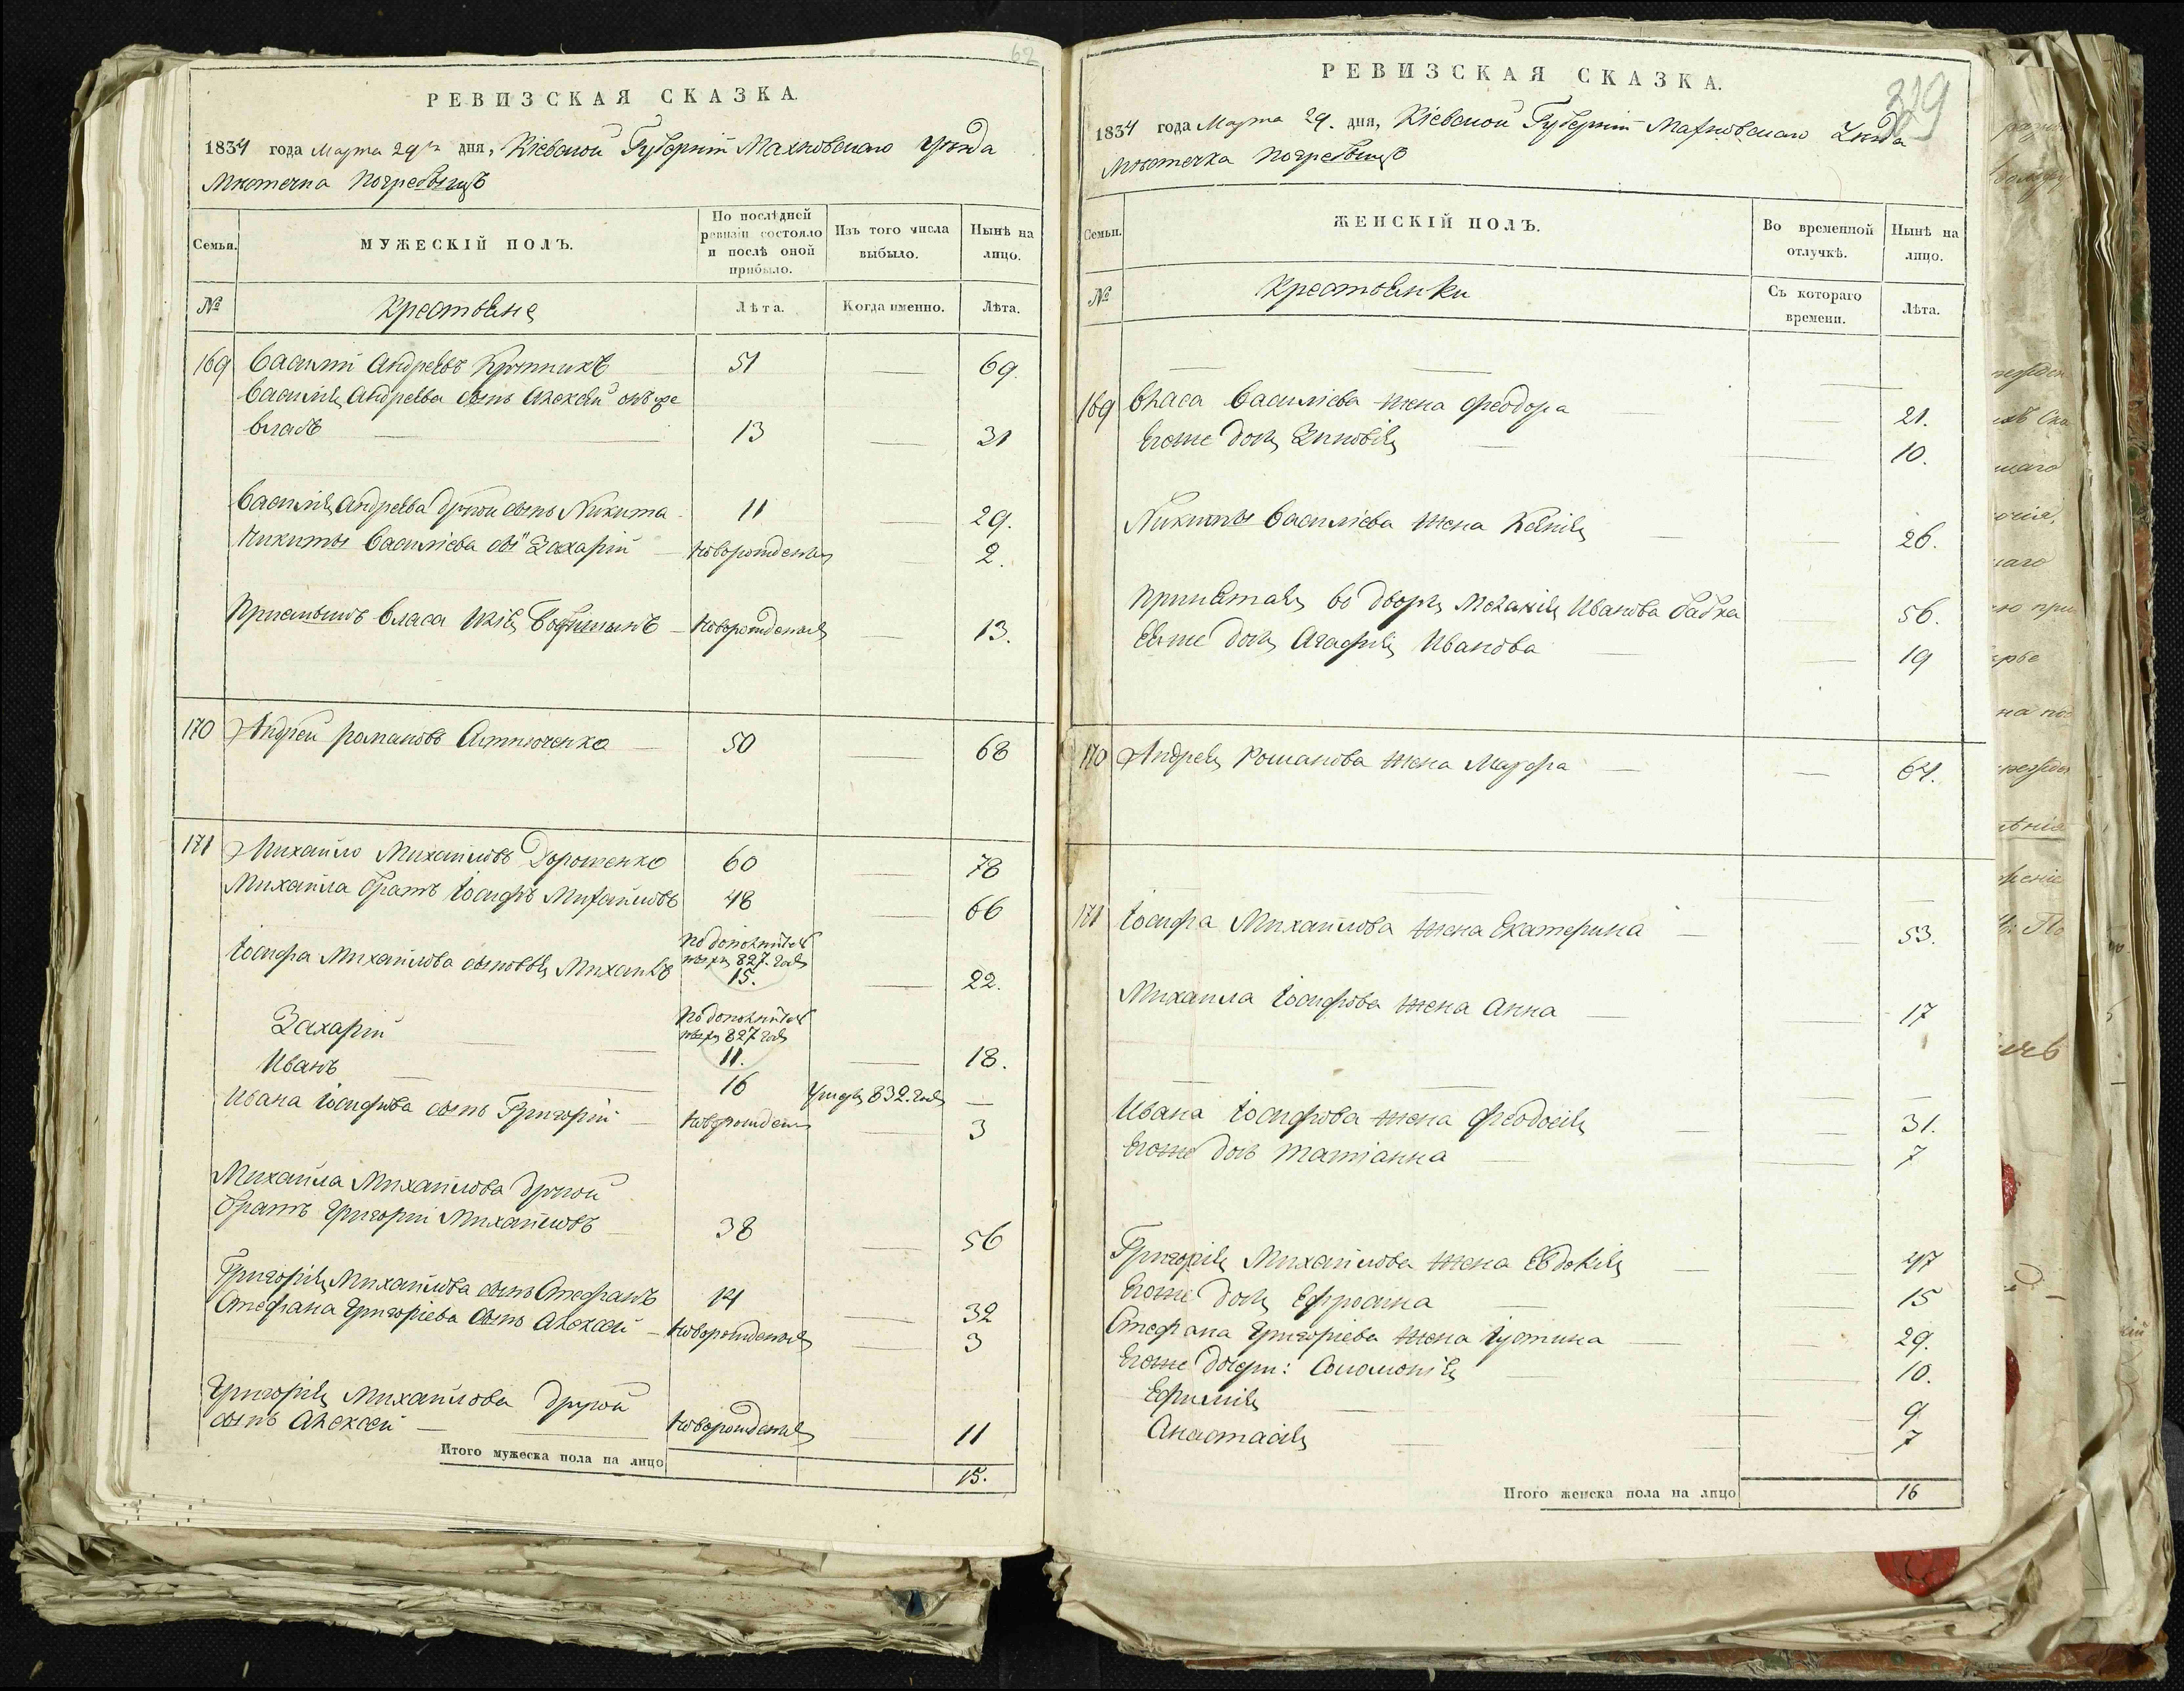 62
РЕВИЗСКАЯ СКАЗКА.
1834 года Марта 29го дня, Кіевской Губерніи Махновскаго Уѣзда
Мѣстечка Погребыщъ
Семьи.
МУЖЕСКІЙ ПОЛЪ.
По послѣдней ревизіи состояло и послѣ оной прибыло.
Изъ того числа выбыло.
Нынѣ на лицо.
№
Крестьяне
Лѣта.
Когда именно.
Лѣта.
169 Василій Андреевъ 51 — 69.
Василія Андреева сынъ Алексей онъ же
Власъ — 13 — 31
Василія Андреева другой сынъ Никита 11 — 29.
Никиты Васильева сынъ Захарій — новорожденъ — 2.
Власа — новорожденный — 13.
170 Андрей романовъ — 50 — 68
171 Михайло Михайловъ Дорошенко 60 — 78
Михайла братъ Іосифъ Михайловъ 48 — 66
Іосифа Михайлова сыновья Михаилъ
827. года
15. — 22.
Захарій
827 года
11. — 18.
Иванъ — 16 832. года —
Ивана Іосифова сынъ Григорій — новорожден — 3
Михайла Михайлова другой
братъ Григорій Михайловъ — 38 — 56
Григорія Михайлова сынъ Стефанъ 14 — 32
Стефана Григоріева сынъ Алексей — новорожденный — 3
Григорія Михайлова другой
сынъ Алексей — новорожденный — 11
Итого мужеска пола на лицо 15.
319
РЕВИЗСКАЯ СКАЗКА.
1834 года Марта 29. дня, Кіевской Губерніи Махновскаго Уѣзда
Мѣстечка Погребыщъ
Семьи.
ЖЕНСКІЙ ПОЛЪ.
Во временной отлучкѣ.
Нынѣ на лицо.
№
Крестьянки
Съ котораго времени.
Лѣта.
169 Власа Васильева жена Феодора — 21.
Егоже дочь Зиновія — 10.
Никиты Васильева жена Ксенія — 26.
во дворъ Меланія Иванова бабка 56.
Еяже дочь Агафія Иванова — 19
170 Андрея Романова жена Марфа — 64.
171 Іосифа Михайлова жена Екатерина — 53.
Михаила Іосифова жена Анна — 17
Ивана Іосифова жена Феодосія — 31.
Егоже дочь Татіанна — 7
Григорія Михайлова жена Евдокія — 47
Егоже дочь Ефросина — 15
Стефана Григоріева жена Іустина — 29.
Егоже дочери: Соломонія — 10.
Ефимія — 9
Анастасія — 7
Итого женска пола на лицо 16